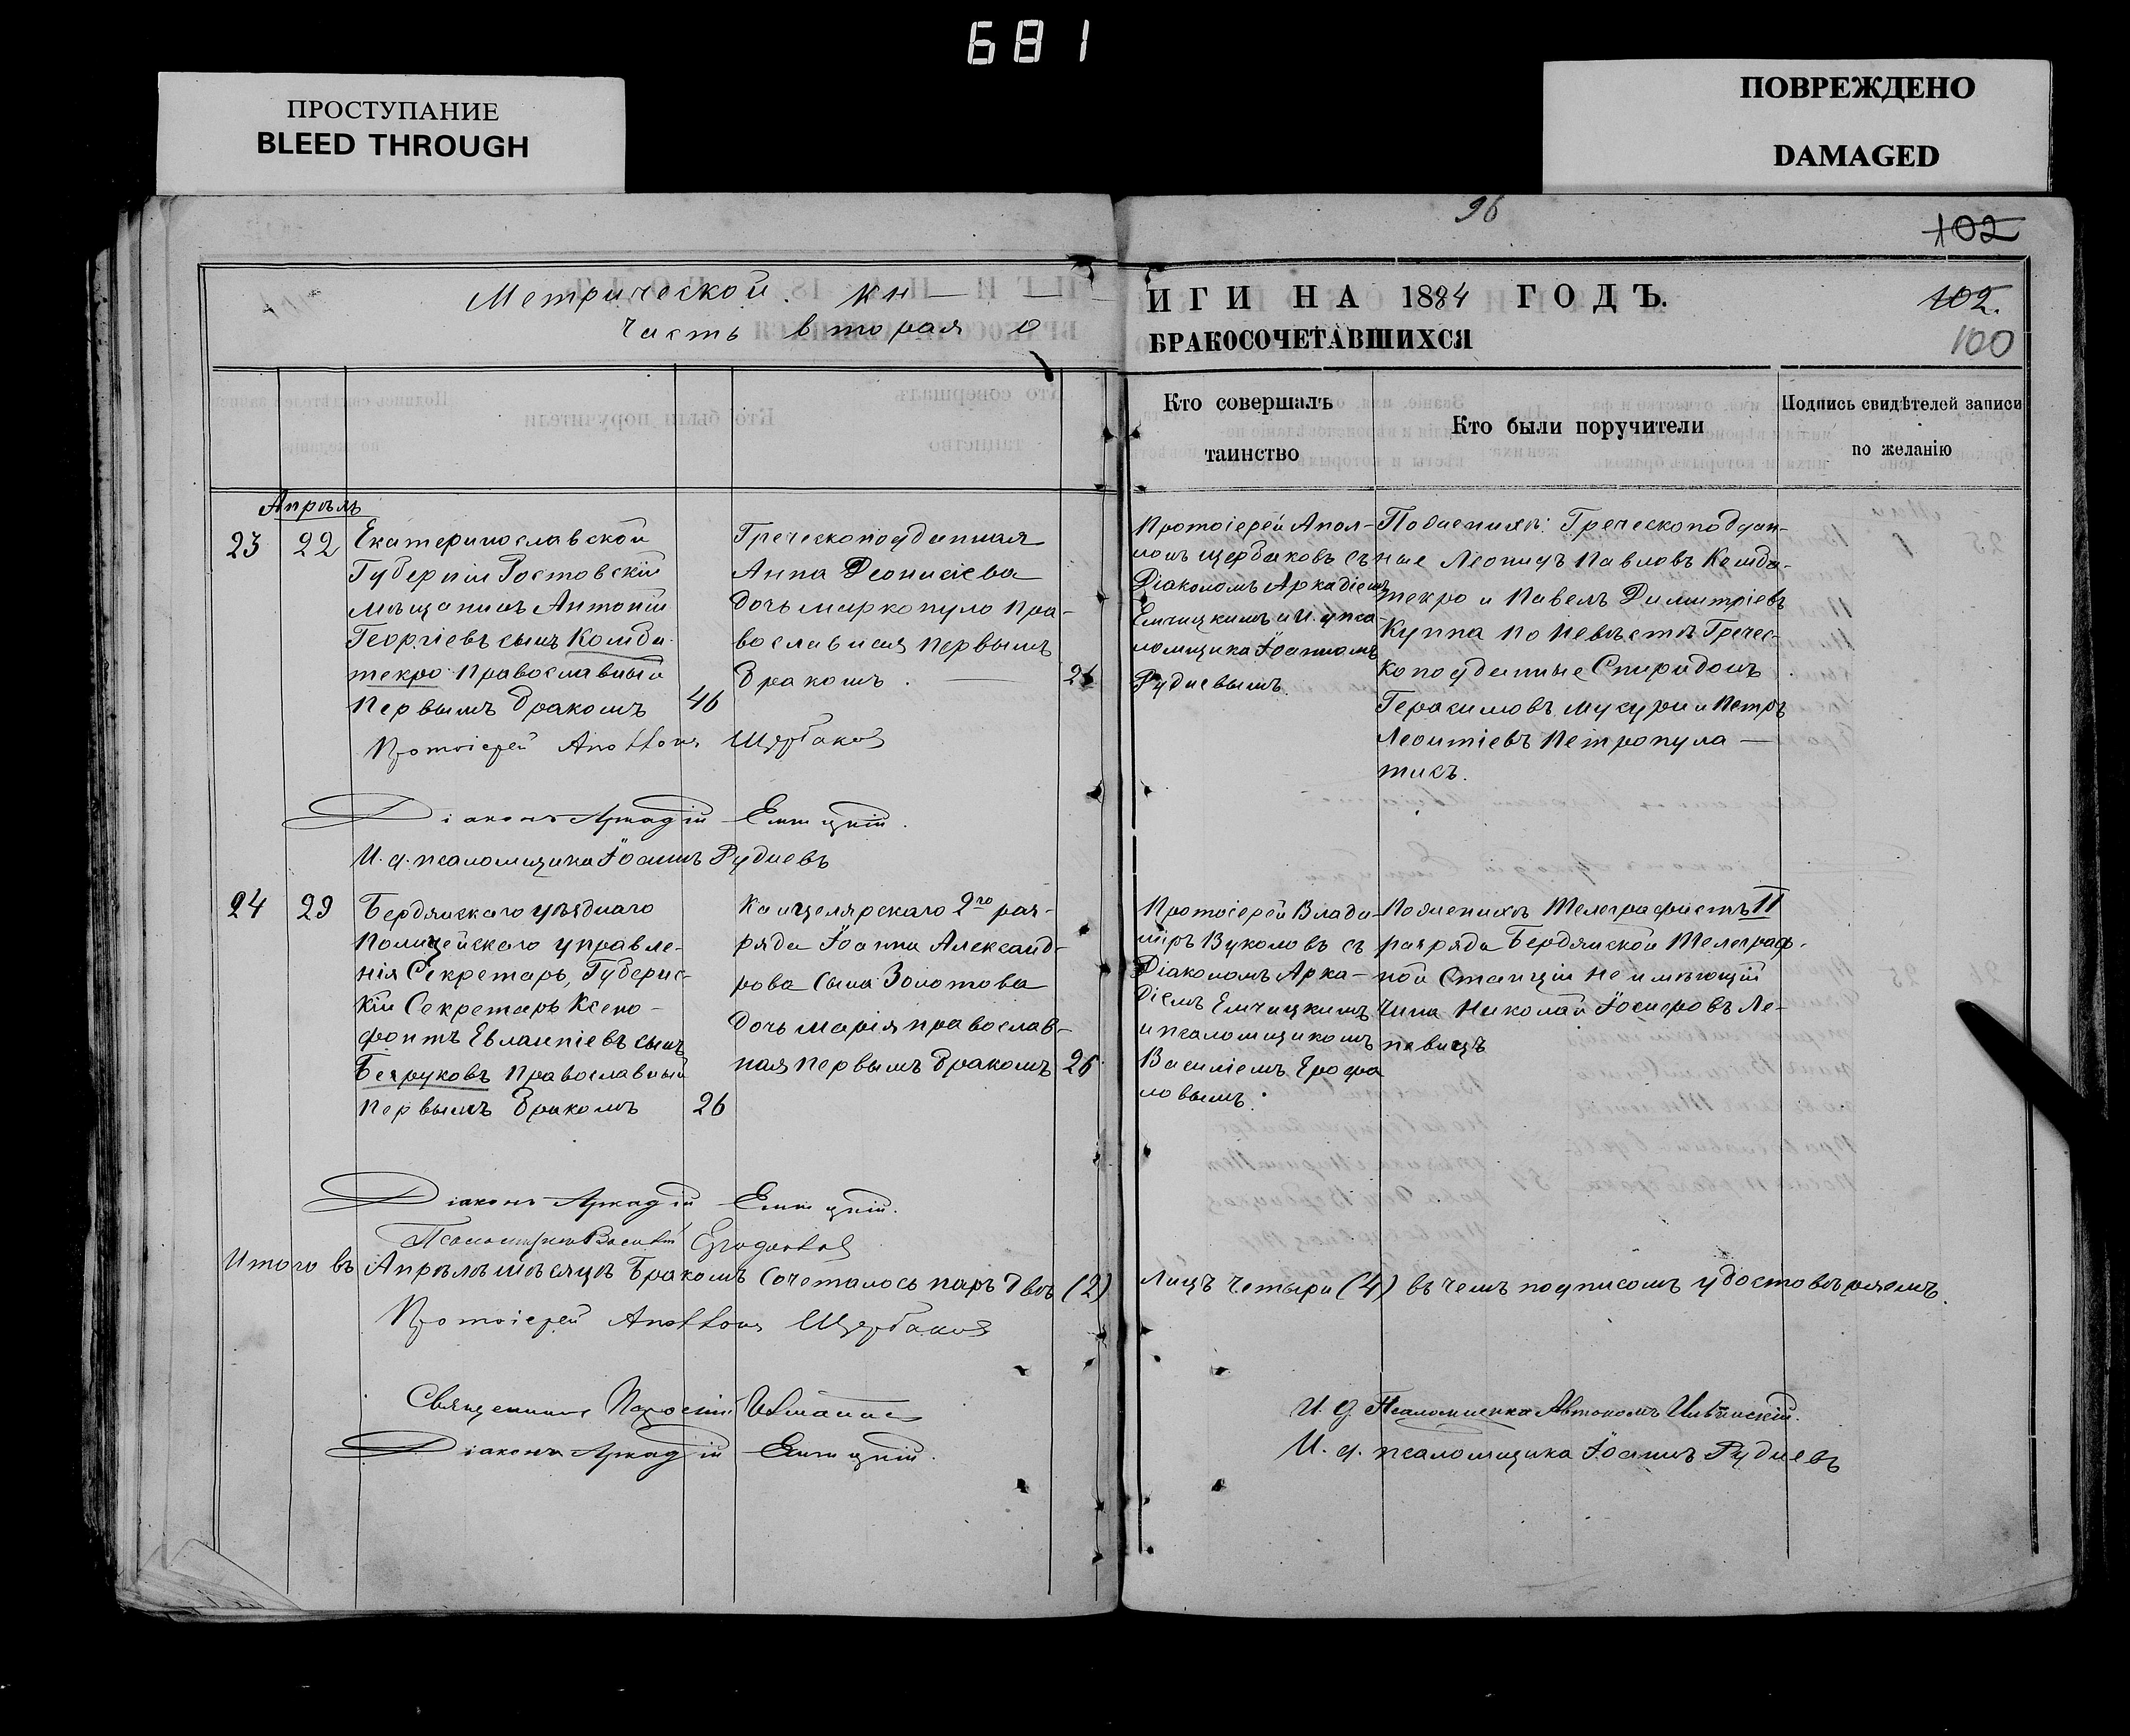 681
ПРОСТУПАНИЕ
BLEED THROUGH
ПОВРЕЖДЕНО
DAMAGED
96
102
Метрической кн
Часть вторая о
ИГИ НА 1884 ГОДЪ.
БРАКОСОЧЕТАВШИХСЯ
102.
100
Кто совершалъ
таинство
Кто были поручители
Подпись свидѣтелей записи
по желанію
Апрѣль
23 22
Екатеринославской
Губерніи Ростовскій
мѣщанинъ Антоній
Георгіевъ сынъ Комди-
текро Православный
первымъ бракомъ 46
Греческоподданная
Анна Деонисіева
дочь Маркопуло пра-
вославная первымъ
бракомъ. 26
Протоіерей Апол-
лонъ Щербаковъ съ
Діакономъ Аркадіемъ
Емчицкимъ и И. д. пса-
ломщика Іоанномъ
Рудневымъ.
По женихѣ: Греческоподдан-
ные Леонидъ Павловъ Комди-
текро и Павелъ Димитріевъ
Куппа по невѣстѣ Гречес-
коподданные Спиридонъ
Герасимовъ Мукури и Петръ
Леонтіевъ Петропула-
тисъ.
Протоіерей Аполлонъ Щербаковъ
Діаконъ Аркадій Емчицкій.
И. д. псаломщика Іоаннъ Рудневъ
24 29
Бердянскаго уѣзднаго
Полицейскаго управле-
нія Секретарь, Губернс-
кій Секретарь Ксено-
фонтъ Евлампіевъ сынъ
Безруковъ Православный
первымъ бракомъ 26
Канцелярскаго 2го раз-
ряда Іоанна Александ-
рова сына Золотова
дочь Марія православ-
ная первымъ бракомъ 26
Протоіерей Влади-
миръ Вуколовъ съ
Діакономъ Арка-
діемъ Емчицкимъ
и псаломщикомъ
Василіемъ Ерофа
ловымъ.
По женихѣ Телеграфистъ II
разряда Бердянской Телеграф-
ной Станціи не имѣющій
чина Николай Іосифовъ Ле-
певицъ
Діаконъ Аркадій Емчицкій.
Псаломщикъ Василій
Итого въ Апрѣлѣ мѣсяцѣ бракомъ сочеталось паръ двѣ (2) лицъ четыри (4) въ чемъ подписомъ удостовѣряемъ.
Протоіерей Аполлонъ Щербаковъ
Священникъ
Діаконъ Аркадій Емчицкій.
И. д. Псаломщика Автономъ Ильинскій.
И. д. псаломщика Іоаннъ Рудневъ